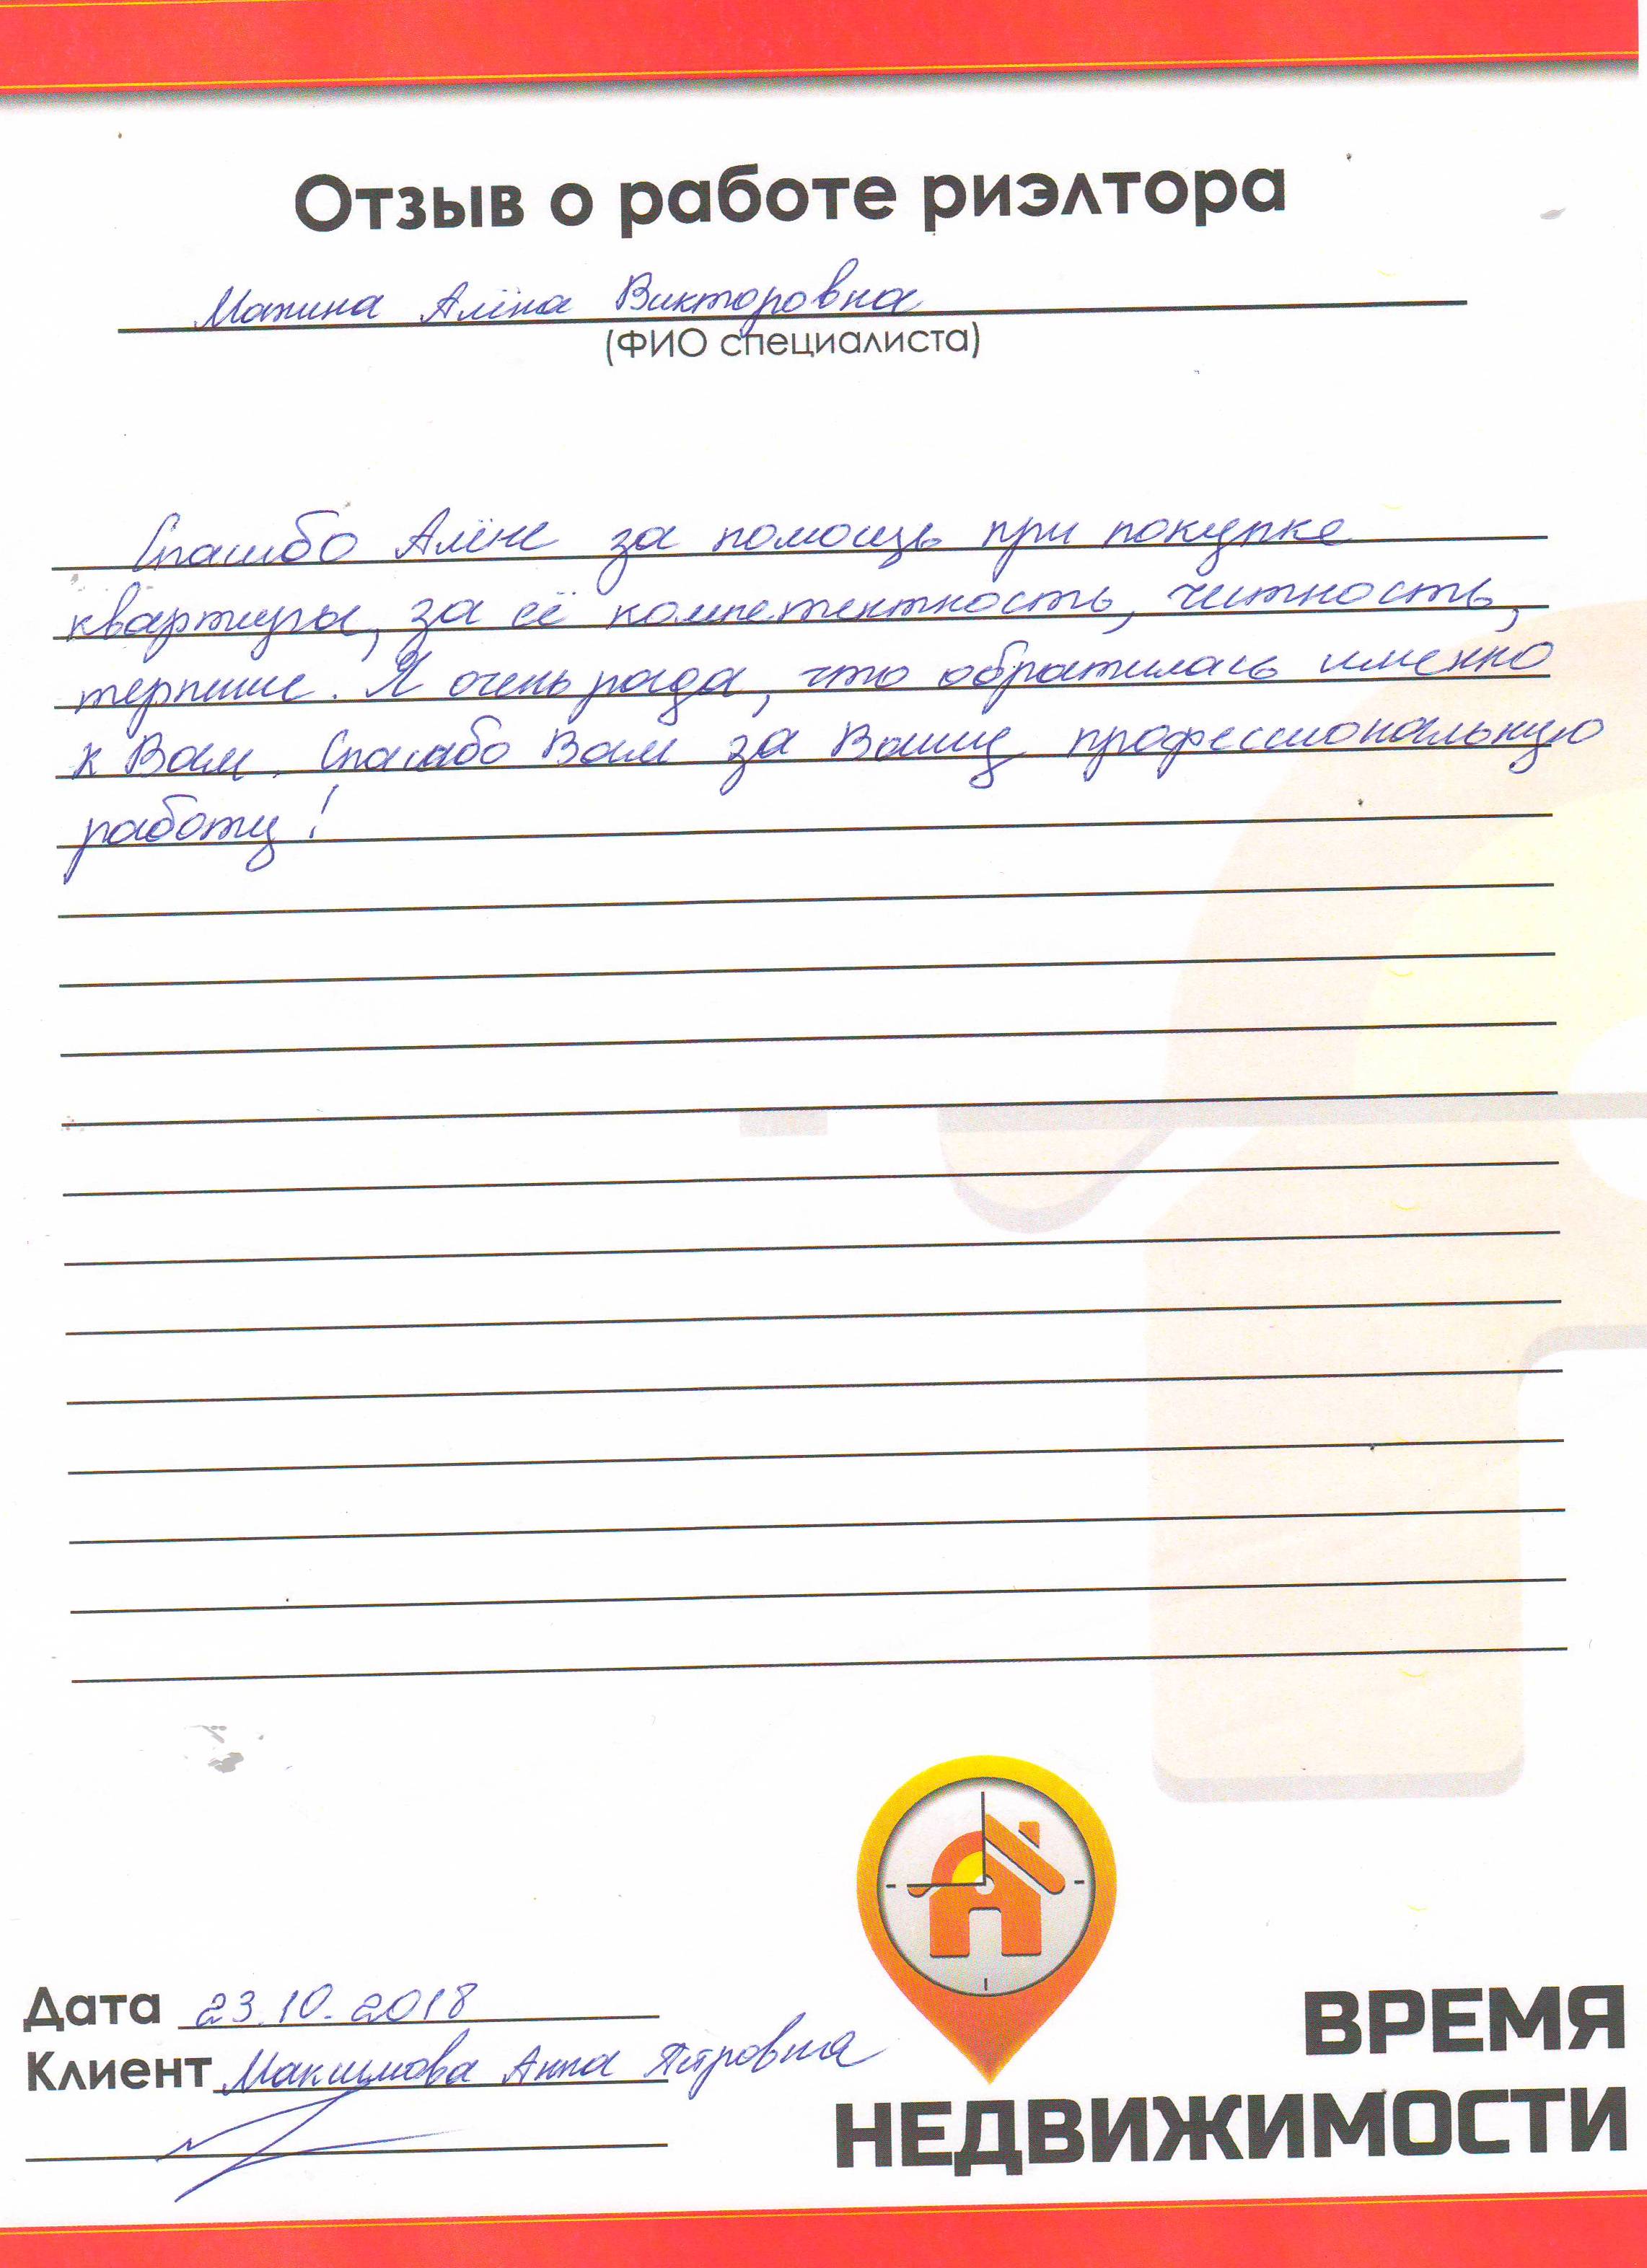 Отзыв о работе риэлтора
Махина Алёна Викторовна
(ФИО специалиста)
Спасибо Алёне за помощь при покупке
квартиры, за её компетентность, читность,
терпение. Я очень рада, что обратилась именно
к Вам. Спасибо Вам за Вашу профессиональную
работу!
Дата 23.10.2018
Клиент Максимова Анна Петровна
ВРЕМЯ
НЕДВИЖИМОСТИ